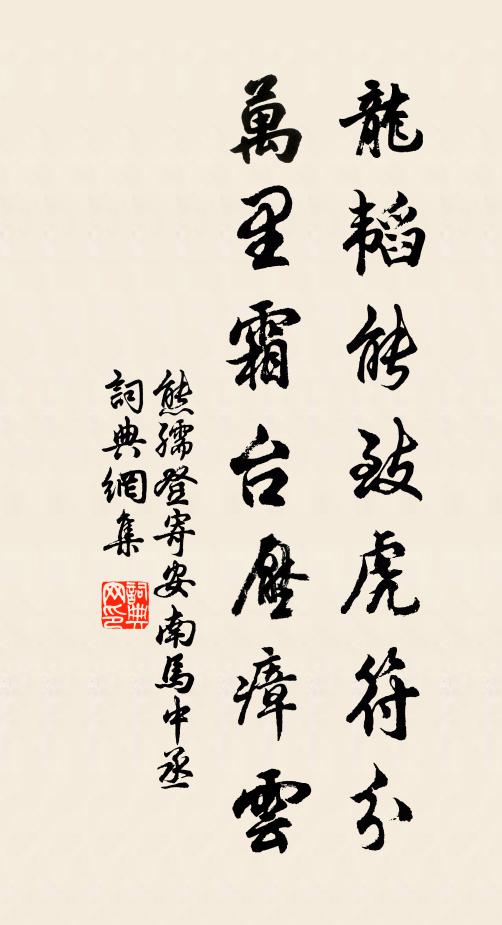 龍韜能致虎符分
萬里霜台壓瘴雲
熊孺登寄安南馬中丞
詞典網集
詞典网印